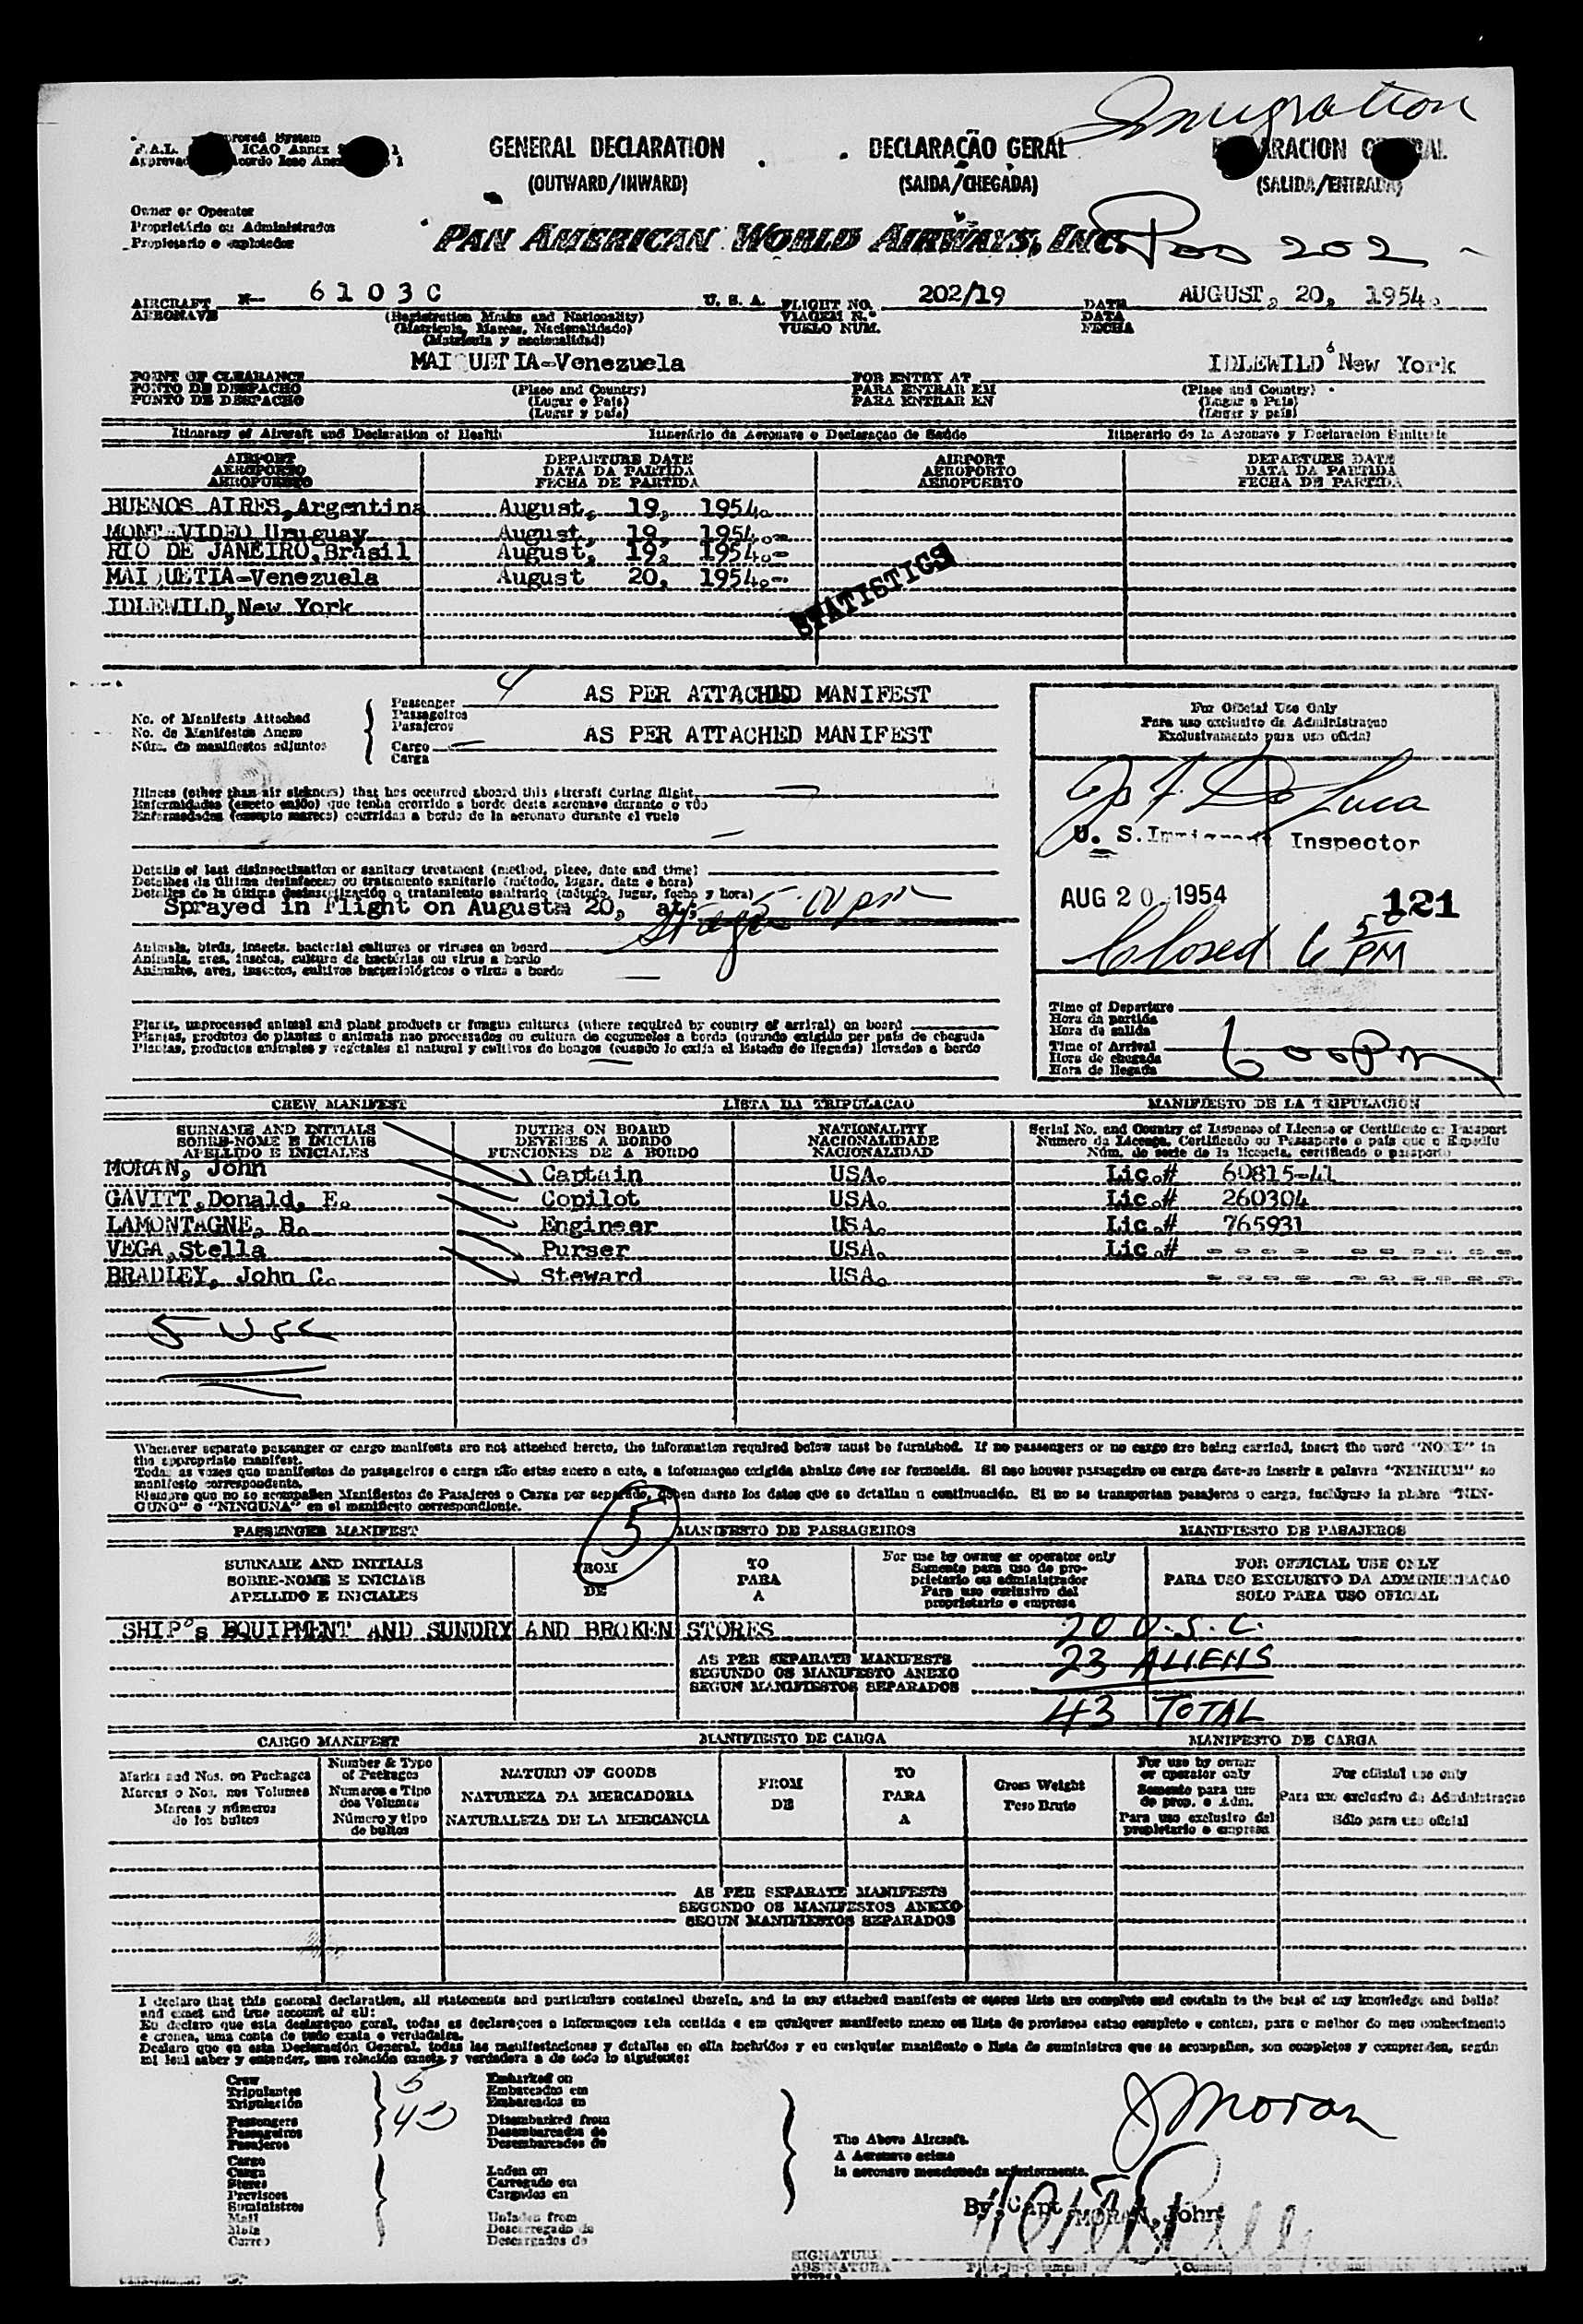 Immigration
GENERAL DECLARATION
(OUTWARD/INWARD)
DECLARAÇÃO GERAL
(SAIDA/CHEGADA)
(SALIDA/ENTRADA)
Owner or Operator
Proprietário ou Administrados
Propietario o explotador
PAN AMERICAN WORLD AIRWAYS, INC.
Paa 202
AIRCRAFT N- 6103C U. S. A. FLIGHT NO. 202/19 DATE AUGUST, 20, 1954.
AERONAVE (Registration Marks and Nationality) VIAGEM N.º DATA
(Matricula, Marcas, Nacionalidade) VUELO NUM. FECHA
(Matricula y nacionalidad)
MAIQUETIA-Venezuela IDLEWILD New York
POINT OF CLEARANCE (Place and Country) FOR ENTRY AT (Place and Country)
PONTO DE DESPACHO (Lugar e Pais) PARA ENTRAR EM (Lugar e Pais)
PUNTO DE DESPACHO (Lugar y pais) PARA ENTRAR EN (Lugar y pais)
Itinerary of Aircraft and Declaration of Health Itinerário da Aeronave e Declaraçao de Saúde Itinerario de la Aeronave y Declaracion Sanitaria
AIRPORT DEPARTURE DATE AIRPORT DEPARTURE DATE
AEROPORTO DATA DA PARTIDA AEROPORTO DATA DA PARTIDA
AEROPUERTO FECHA DE PARTIDA AEROPUERTO FECHA DE PARTIDA
BUENOS AIRES, Argentina August, 19, 1954.
MONTEVIDEO Uruguay August, 19, 1954.-
RIO DE JANEIRO, Brasil August, 19, 1954.-
MAIQUETIA-Venezuela August 20, 1954.-
IDLEWILD, New York
STATISTICS
No. of Manifests Attached
No. de Manifestos Anexo
Núm. de manifiestos adjuntos
Passenger 4 AS PER ATTACHED MANIFEST
Passageiros
Pasajeros
Cargo AS PER ATTACHED MANIFEST
Carga
For Official Use Only
Para uso exclusivo da Administraçao
Exclusivamente para uso oficial
De Luca
U. S. Immigrant Inspector
AUG 20 1954 121
Closed 6 50 PM
Illness (other than air sickness) that has occurred aboard this aircraft during flight
Enfermidades (exceto enjôo) que tenha ocorrido a bordo desta aeronave durante o vôo
Enfermedades (excepto mareos) ocurridas a bordo de la aeronave durante el vuelo
Details of last disinsectization or sanitary treatment (method, place, date and time)
Detalhes da última desinfeccao ou tratamento sanitario (método, lugar, data e hora)
Detalles de la última desinsectización o tratamiento sanitario (método, lugar, fecha y hora)
Sprayed in Flight on August 20, at 5:00 pm
Animals, birds, insects, bacterial cultures or viruses on board
Animais, aves, insetos, cultura de bactérias ou virus a bordo
Animales, aves, insectos, cultivos bacteriológicos o virus a bordo
Plants, unprocessed animal and plant products or fungus cultures (where required by country of arrival) on board
Plantas, produtos de plantas o animais nao processados ou cultura de cogumelos a bordo (quando exigido per pais de chegada
Plantas, productos animales y vegetales al natural y cultivos de hongos (cuando lo exija el Estado de llegada) llevados a bordo
Time of Departure
Hora da partida
Hora de salida
Time of Arrival 600Pm
Hora de chegada
Hora de llegada
CREW MANIFEST LISTA DA TRIPULACAO MANIFIESTO DE LA TRIPULACION
SURNAME AND INITIALS DUTIES ON BOARD NATIONALITY Serial No. and Country of Issuance of License or Certificate or Passport
SOBRE-NOME E INICIAIS DEVERES A BORDO NACIONALIDADE Numero da Licença, Certificado ou Passaporte e pais que o Expediu
APELLIDO E INICIALES FUNCIONES DE A BORDO NACIONALIDAD Núm. de serie de la licencia, certificado o pasaporte
MORAN, John Captain USA. Lic.# 60815-41
GAVITT, Donald, E. Copilot USA. Lic.# 260304
LAMONTAGNE, B. Engineer USA. Lic.# 765931
VEGA, Stella Purser USA. Lic.# - - - - - - - - - -
BRADLEY, John C. Steward USA. - - - - - - - - - -
5 USC
Whenever separate passenger or cargo manifests are not attached hereto, the information required below must be furnished. If no passengers or no cargo are being carried, insert the word "NONE" in
the appropriate manifest.
Todas as vezes que manifestos de passageiros e carga não estao anexo a este, a informaçao exigida abaixo deve ser fornecida. Si nao houver passageiro ou carga deve-se inserir a palavra "NENHUM" no
manifesto correspondente.
Siempre que no se acompañen Manifiestos de Pasajeros o Carga por separado, deben darse los datos que se detallan a continuación. Si no se transportan pasajeros o carga, inclúyase la plabra "NIN-
GUNO" o "NINGUNA" en el manifiesto correspondiente.
5
PASSENGER MANIFEST MANIFESTO DE PASSAGEIROS MANIFIESTO DE PASAJEROS
SURNAME AND INITIALS FROM TO For use by owner or operator only FOR OFFICIAL USE ONLY
SOBRE-NOME E INICIAIS DE PARA Somente para uso de pro- PARA USO EXCLUSIVO DA ADMINISTRACAO
APELLIDO E INICIALES A prietario ou administrador SOLO PARA USO OFICIAL
Para uso exclusivo del
proprietario o empresa
SHIP's EQUIPMENT AND SUNDRY AND BROKEN STORES 20 U.S.C.
AS PER SEPARATE MANIFESTS 23 ALIENS
SEGUNDO OS MANIFESTO ANEXO
SEGUN MANIFIESTOS SEPARADOS 43 TOTAL
CARGO MANIFEST MANIFIESTO DE CARGA MANIFESTO DE CARGA
Marks and Nos. on Packages
Marcas o Nos. nos Volumes
Marcas y números
de los bultos
Number & Type
of Packages
Numeros e Tipo
dos Volumes
Número y tipo
de bultos
NATURE OF GOODS
NATUREZA DA MERCADORIA
NATURALEZA DE LA MERCANCIA
FROM
DE
TO
PARA
A
Gross Weight
Peso Bruto
For use by owner
or operator only
Somente para uso
de prop. e Adm.
Para uso exclusivo del
propietario o empresa
For official use only
Para uso exclusivo da Administraçao
Sólo para uso oficial
AS PER SEPARATE MANIFESTS
SEGUNDO OS MANIFESTOS ANEXO
SEGUN MANIFIESTOS SEPARADOS
I declare that this general declaration, all statements and particulars contained therein, and in any attached manifests or stores lists are complete and contain to the best of my knowledge and belief
and exact and true account of all:
Eu declaro que esta declaraçao geral, todas as declaraçoes e informaçoes nela contida e em qualquer manifesto anexo ou lista de provisoes estao completo e contem, para o melhor do meu conhecimento
e crenca, uma conta de tudo exata e verdadeira.
Declaro que en esta Declaración General, todas las manifestaciones y detalles en ella incluídos y en cualquier manifiesto o lista de suministros que se acompañen, son completos y comprenden, según
mi leal saber y entender, una relación exacta y verdadera a de todo lo siguiente:
Crew 5
Tripulantes
Tripulación
Passengers 43
Passageiros
Pasajeros
Cargo
Carga
Stores
Provisoes
Suministros
Mail
Mala
Correo
Embarked on
Embarcados em
Embarcados en
Disembarked from
Desembarcados de
Desembarcados de
Laden on
Carregado em
Cargados en
Unladen from
Descarregado de
Descargados de
The Above Aircraft.
A Aeronave acima
la aeronave mencionada anteriormente.
J Moran
By, Capt. MORAN, John
SIGNATURE
ASSINATURA
Pilot-in-Command